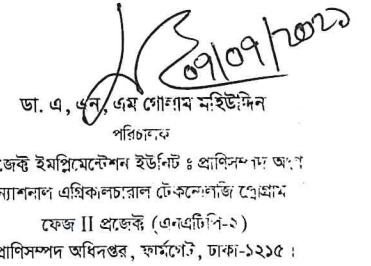 ০৭/০৭/২০২১
ডা. এ, এন, এম গোলাম মহিউদ্দিন
পরিচালক
জেক্ট ইমপ্লিমেন্টেশন ইউনিট ঃ প্রাণিসম্পদ অংগ
ন্যাশনাল এগ্রিকালচারাল টেকনোলজি প্রোগ্রাম
ফেজ II প্রজেক্ট (এনএটিপি-২)
প্রাণিসম্পদ অধিদপ্তর, ফার্মগেট, ঢাকা-১২১৫ ।